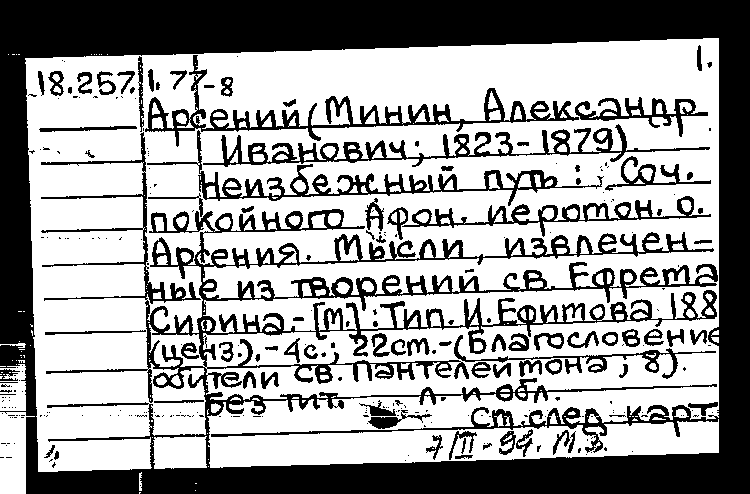 1.
18.257. 1.77-8
Арсений (Минин, Александр
Иванович; 1823-1879).
Неизбежный путь: Соч.
покойного Афон. иеромон. о.
Арсения. Мысли, извлечен=
ные из творений св. Ефрема
Сирина.-[М.]: Тип. И. Ефимова, 188
(ценз.).-4с.; 22см.-(Благословение
обители св. Пантелеймона; 8).
Без тит. л. и обл.
См. след. карт.
7/II-94. М.З.